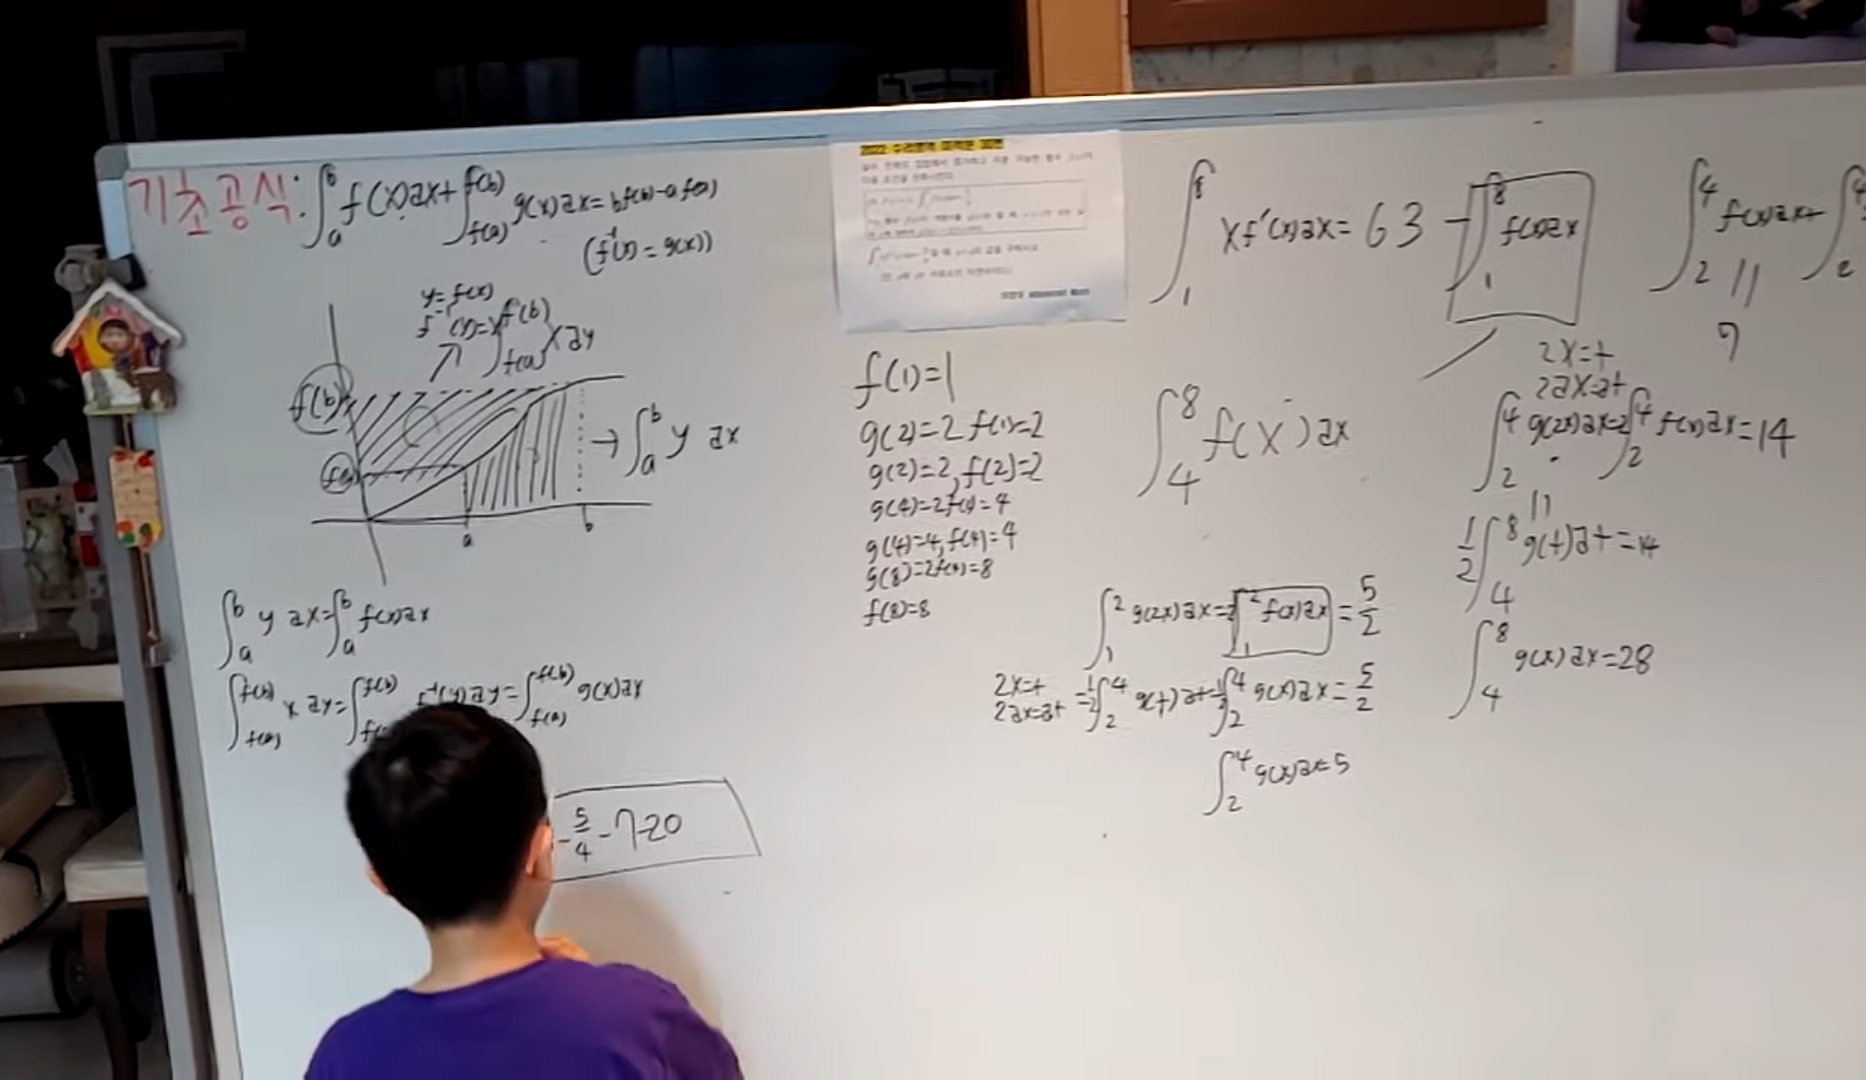 기초공식: ∫_a^b f(x)dx + ∫_{f(a)}^{f(b)} g(x)dx = bf(b) - af(a)
(f⁻¹(x) = g(x))
y=f(x)
f⁻¹(y)=x
∫_{f(a)}^{f(b)} x dy
f(b)
f(a)
a
b
→ ∫_a^b y dx
∫_a^b y dx = ∫_a^b f(x)dx
∫_{f(a)}^{f(b)} x dy = ∫ f⁻¹(y)dy = ∫_{f(a)}^{f(b)} g(x)dx
- 5/4 - 7 - 20
2022 수리논술 미적분 30번
f(1)=1
g(2)=2f(1)=2
g(2)=2, f(2)=2
g(4)=2f(2)=4
g(4)=4, f(4)=4
g(8)=2f(4)=8
f(8)=8
∫_1^8 xf'(x)dx = 63 - ∫_1^8 f(x)dx
∫_4^8 f(x)dx
∫_1^2 g(2x)dx = 2∫_1^2 f(x)dx = 5/2
2x=t
2dx=dt
= 1/2 ∫_2^4 g(t)dt = 1/2 ∫_2^4 g(x)dx = 5/2
∫_2^4 g(x)dx = 5
∫_2^4 f(x)dx + ∫_2^4
11
7
2x=t
2dx=dt
∫_2^4 g(2x)dx = 2∫_2^4 f(x)dx = 14
11
1/2 ∫_4^8 g(t)dt = 14
∫_4^8 g(x)dx = 28